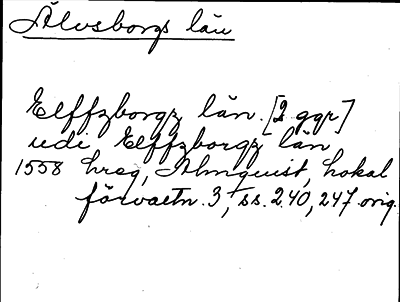 Älvsborgs län
Elffzborgz län. [2 ggr]
udi Elffzborgz län
1558 hreg, Almquist, Lokal
förvaltn. 3, ss. 240, 247 orig.